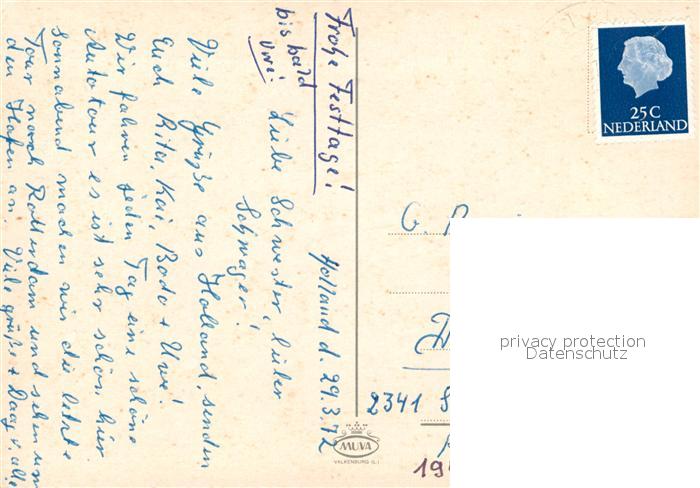 Frohe Festtage!
bis bald
Uwe!
Holland d. 29.3.72
Liebe Schwester, lieber
Schwager!
Viele Grüße aus Holland, senden
Euch Rita, Kai, Bodo + Uwe!
Wir fahren jeden Tag eine schöne
Autotour es ist sehr schön, hier
Sonnabend machen wir die letzte
Tour nach Rotterdam und sehen uns
den Hafen an. Viele Grüße +
25C
NEDERLAND
G.
2341
19
privacy protection
Datenschutz
MUVA
VALKENBURG (L.)